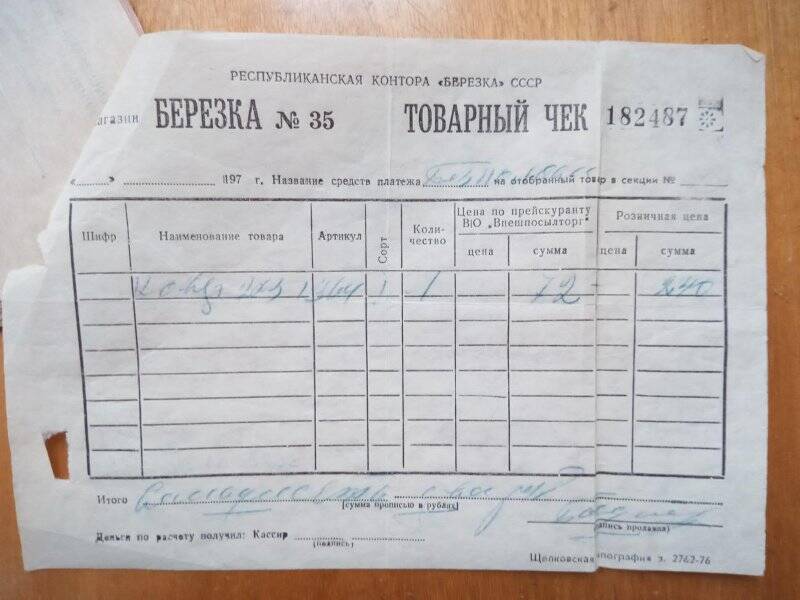 РЕСПУБЛИКАНСКАЯ КОНТОРА «БЕРЕЗКА» СССР
агазин БЕРЕЗКА № 35 ТОВАРНЫЙ ЧЕК 182487
« » 197 г. Название средств платежа на отобранный товар в секции №
Шифр Наименование товара Артикул Сорт Количество Цена по прейскуранту В/О „Внешпосылторг" Розничная цена
цена сумма цена сумма
1 72 - 240
Итого
(сумма прописью в рублях)
Деньги по расчету получил: Кассир
(подпись) пись продавца)
Щелковская ипография з. 2762-76